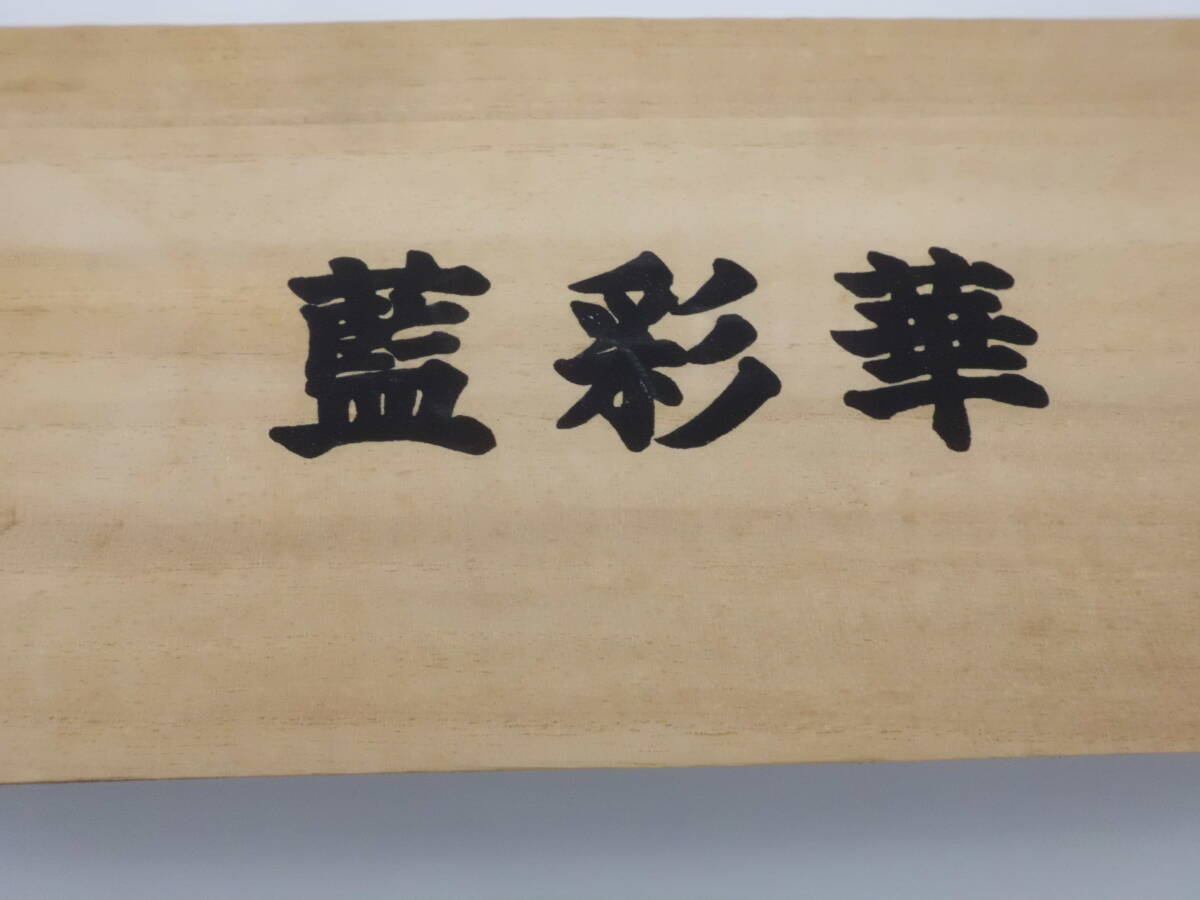 藍彩華